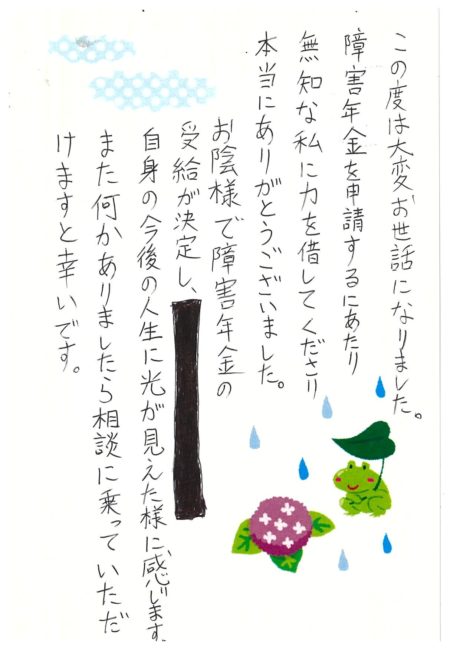 この度は大変お世話になりました。
障害年金を申請するにあたり
無知な私に力を借してくださり
本当にありがとうございました。
お陰様で障害年金の
受給が決定し、
自身の今後の人生に光が見えた様に感じます。
また何かありましたら相談に乗っていただ
けますと幸いです。